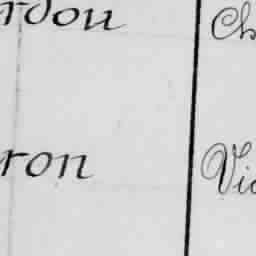 rdou Ch
ron Vic